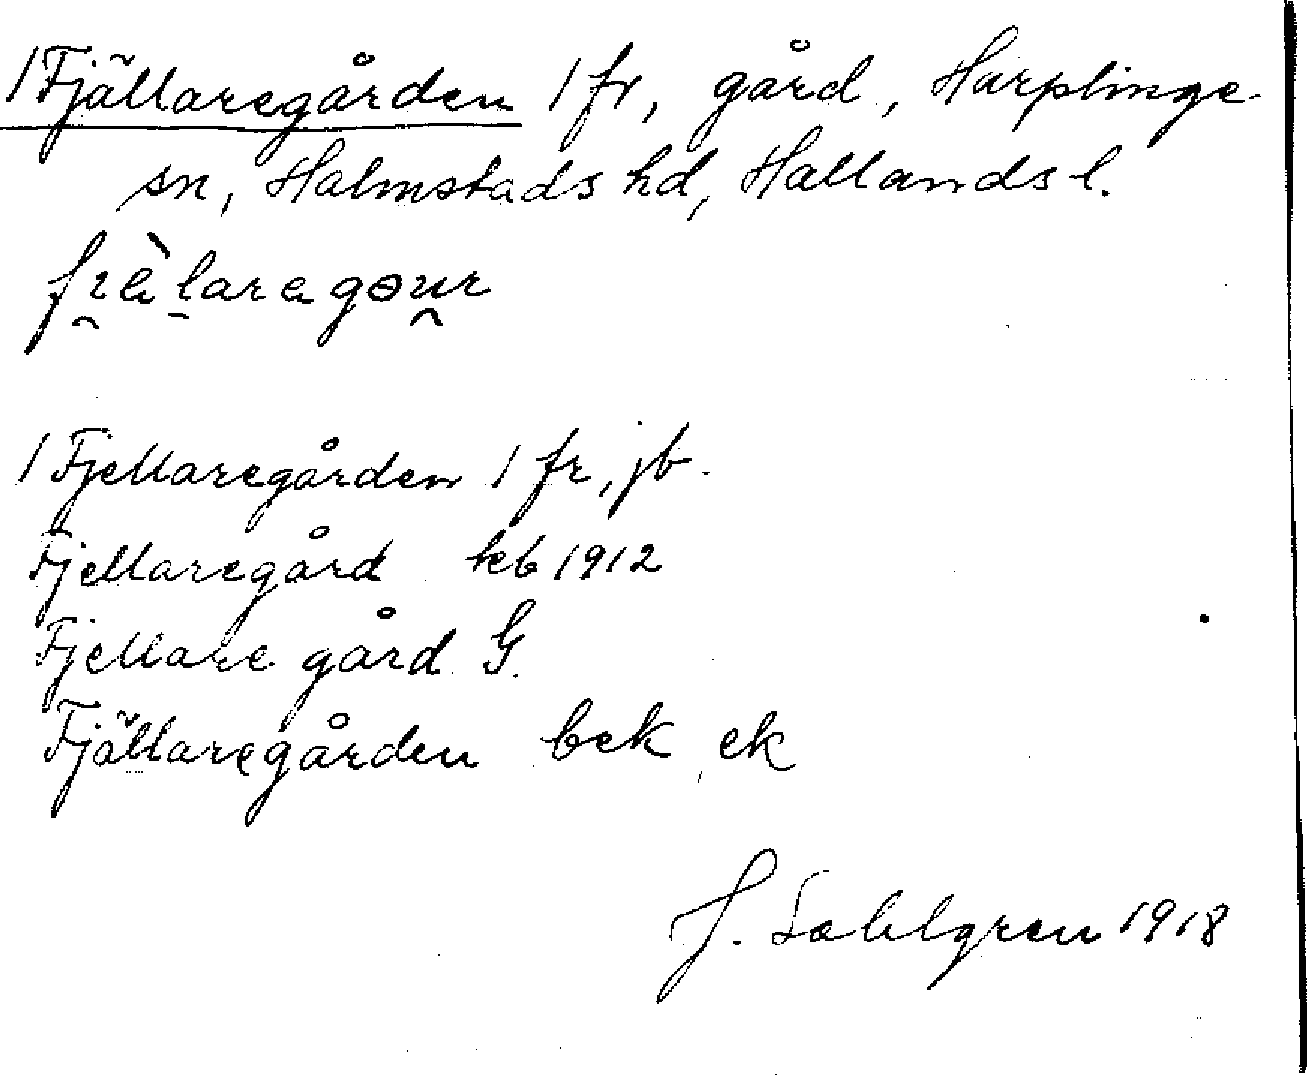 /Fjällaregården 1 fr, gård, Harplinge
sn, Halmstads hd, Hallands l.
/Fjellaregården 1 fr, jb.
Fjellaregård kb 1912
Fjellare gård G.
Fjällaregården bek, ek
J. Sahlgren 1918